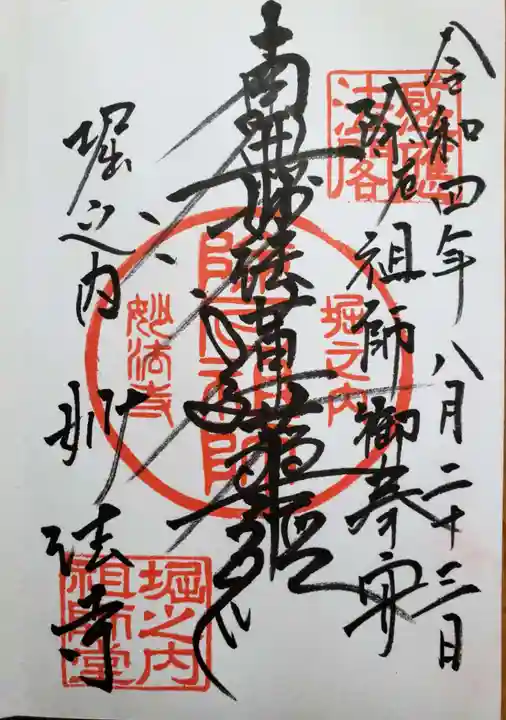 令和四年八月二十三日
除厄祖師御奉安
南無妙法蓮華経
堀之内妙法寺
感應
法務
堀之内
除厄祖師
妙法寺
堀之内
祖師堂